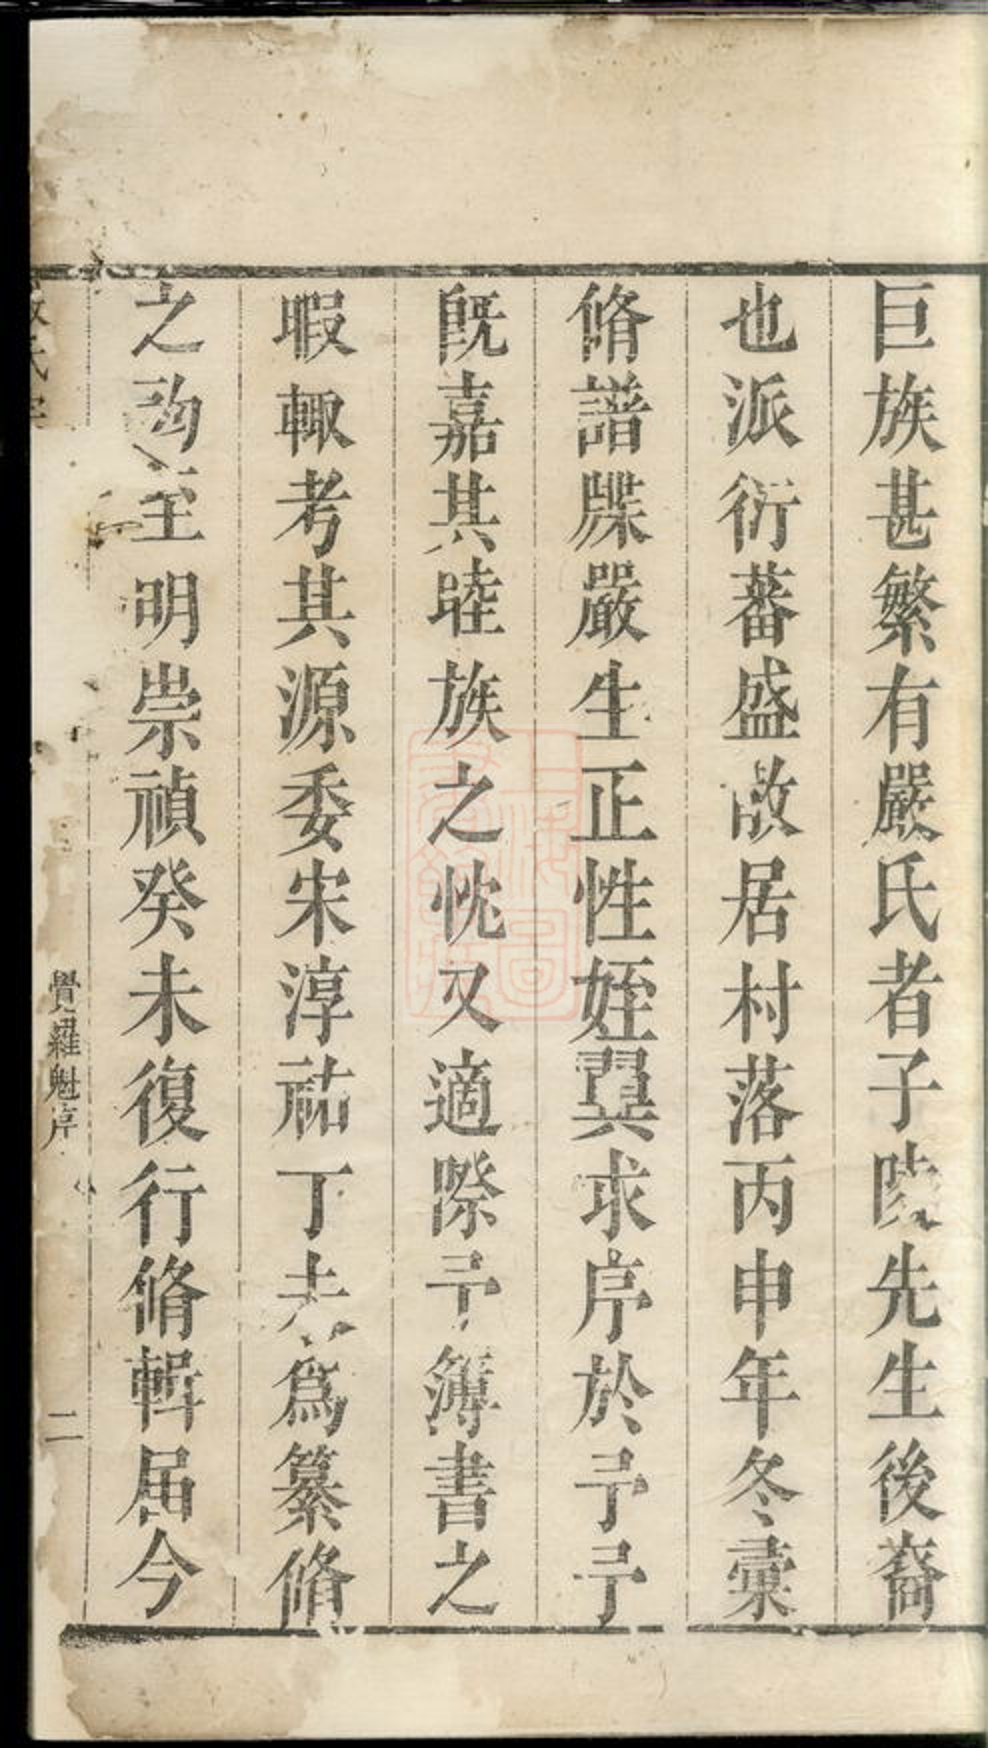 巨族甚繁有嚴氏者子陵先生後裔
也派衍蕃盛散居村落丙申年冬彙
脩譜牒嚴生正性姪翼求序於予予
既嘉其睦族之忱又適際予簿書之
暇輙考其源委宋淳祐丁未為纂脩
之始至明崇禎癸未復行脩輯届今
覺羅魁序
二